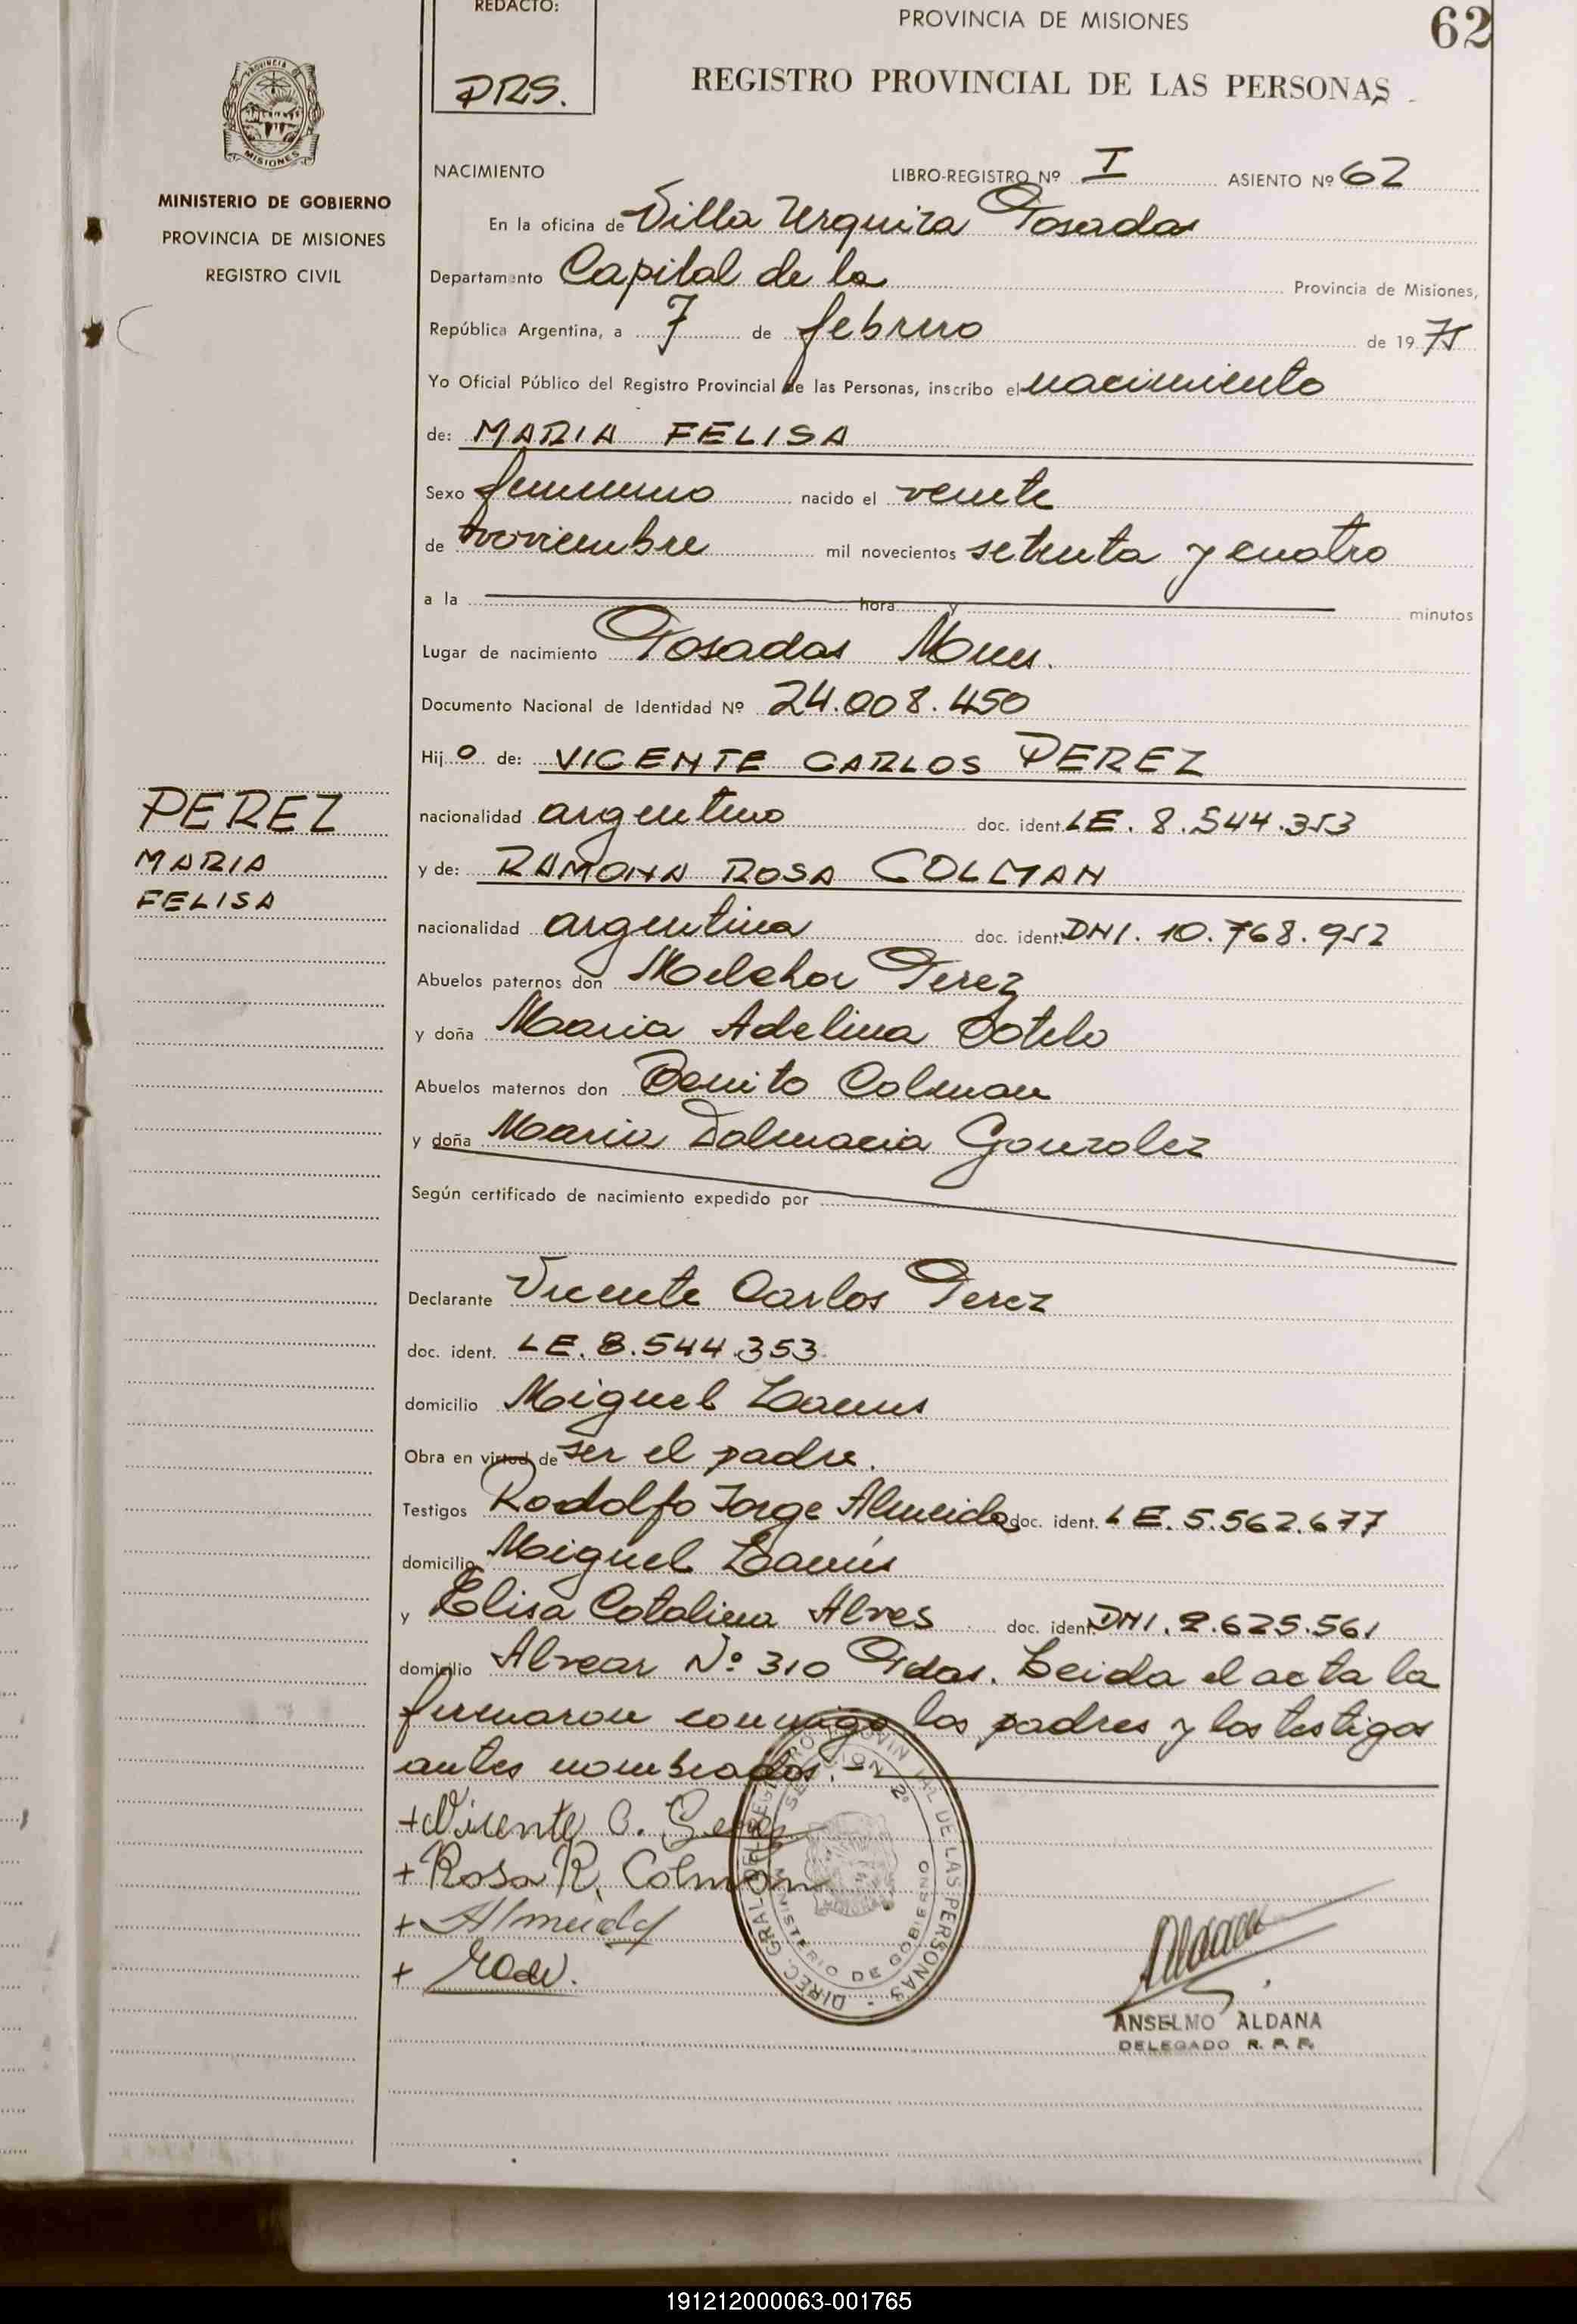 REDACTO:
PROVINCIA DE MISIONES
62
PRS.
REGISTRO PROVINCIAL DE LAS PERSONAS
PROVINCIA DE
MISIONES
MINISTERIO DE GOBIERNO
PROVINCIA DE MISIONES
REGISTRO CIVIL
NACIMIENTO LIBRO-REGISTRO Nº I ASIENTO Nº 62
En la oficina de Villa Urquiza Posadas
Departamento Capital de la Provincia de Misiones,
República Argentina, a 7 de febrero de 1975
Yo Oficial Público del Registro Provincial de las Personas, inscribo el nacimiento
de: MARIA FELISA
Sexo femenino nacido el veinte
de noviembre mil novecientos setenta y cuatro
a la hora y minutos
Lugar de nacimiento Posadas Mnes.
Documento Nacional de Identidad Nº 24.008.450
Hijo de: VICENTE CARLOS PEREZ
nacionalidad argentino doc. ident. LE. 8.544.353
y de: RAMONA ROSA COLMAN
nacionalidad argentina doc. ident. DNI. 10.768.952
Abuelos paternos don Melchor Perez
y doña Maria Adelina Sotelo
Abuelos maternos don Benito Colman
y doña Maria Dalmacia Gonzalez
Según certificado de nacimiento expedido por
PEREZ
MARIA
FELISA
Declarante Vicente Carlos Perez
doc. ident. LE. 8.544.353
domicilio Miguel Lanus
Obra en virtud de ser el padre.
Testigos Rodolfo Jorge Almeida doc. ident. LE. 5.562.677
domicilio Miguel Lanús
y Elisa Catalina Alves doc. ident. DNI. 2.625.561
domicilio Alvear Nº 310 Pdas. Leida el acta la
firmaron conmigo los padres y los testigos
antes nombrados.-
+ Vicente C. Perez
+ Rosa R. Colman
+ Almeida
+
DIREC. GRAL DEL REGISTRO PROVINCIAL DE LAS PERSONAS -
SECCION 2º
MINISTERIO DE GOBIERNO
ANSELMO ALDANA
DELEGADO R. P. P.
191212000063-001765